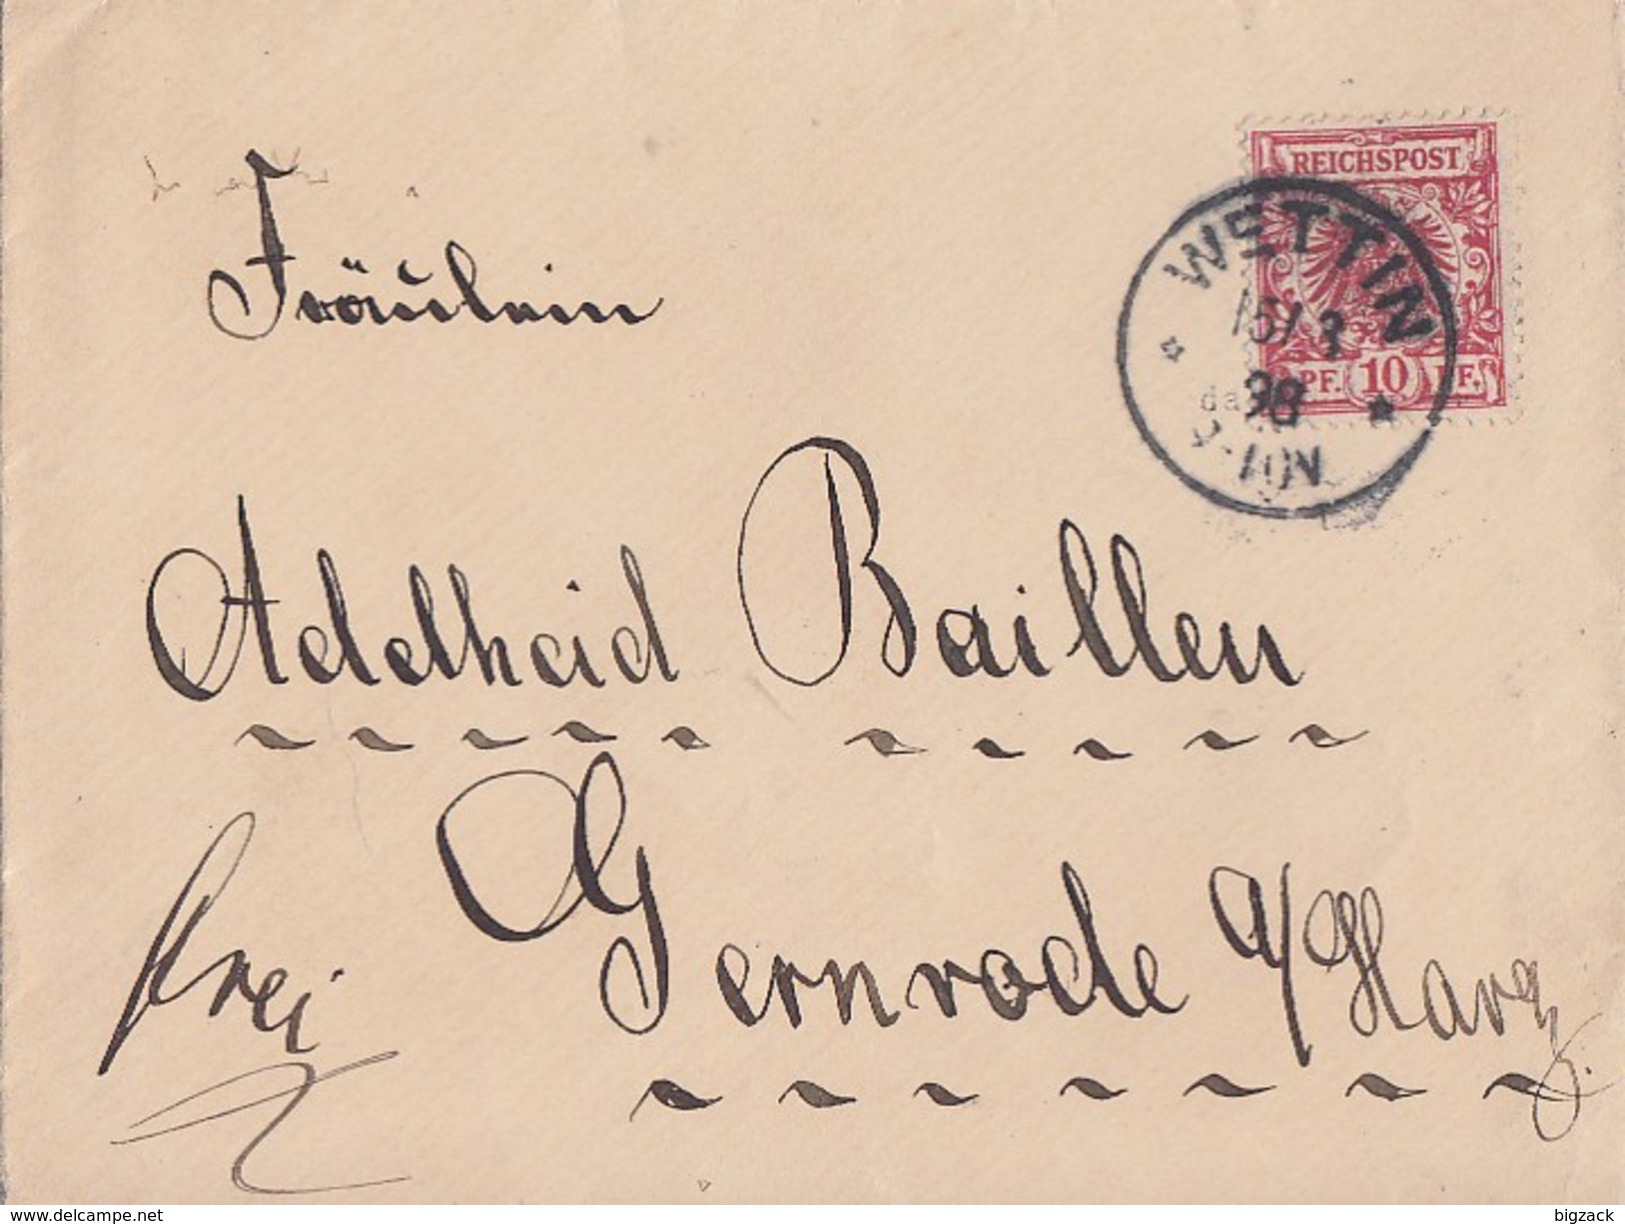 REICHSPOST
WETTIN
15/3
98
PF. 10 PF.
Fräulein
Adelheid Baillen
frei
Gernrode a/Harz.
www.delcampe.net
bigzack